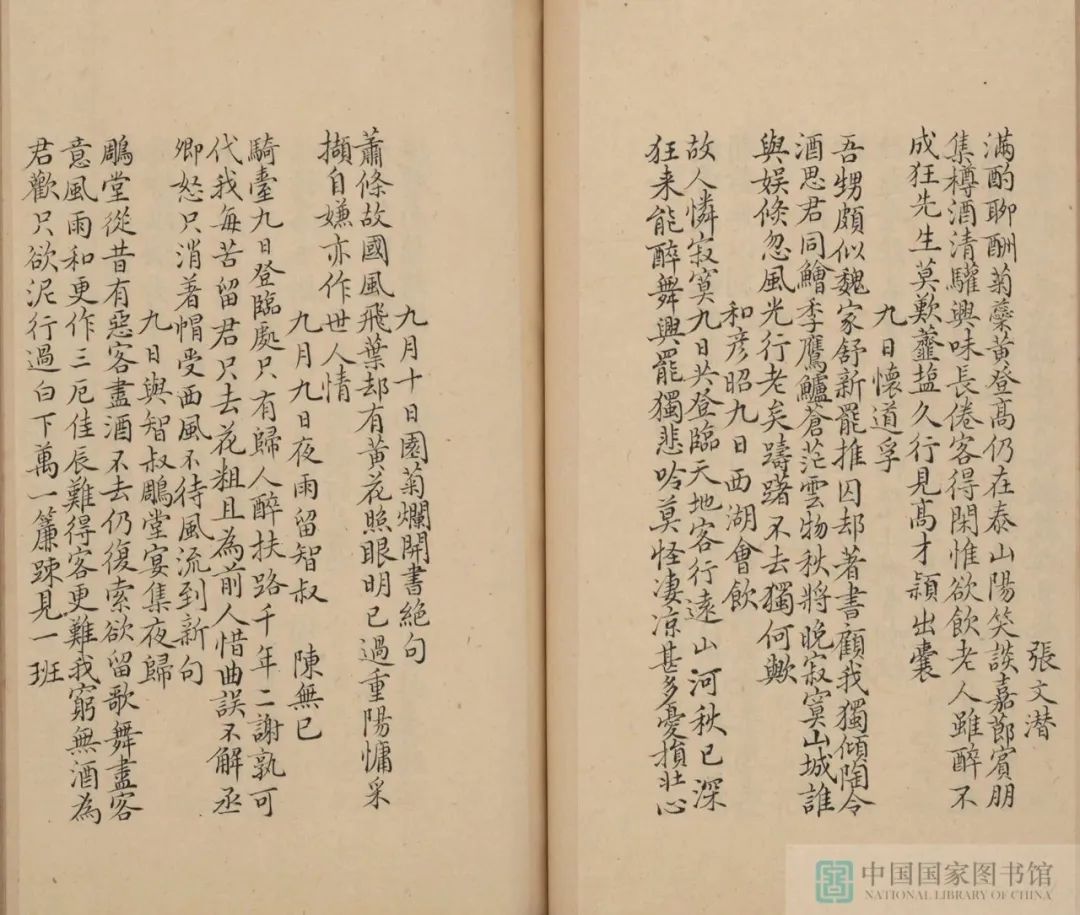 張文潜
滿酌聊酬菊蘂黄登髙仍在泰山陽笑談嘉節賓朋
集樽酒清驩興味長倦客得閑惟欲飲老人雖醉不
成狂先生莫歎虀塩久行見髙才穎出囊
九日懷道孚
吾甥頗似魏家舒新罷推囚却著書顧我獨傾陶令
酒思君同鱠季鷹鱸蒼茫雲物秋將晚寂寞山城誰
與娱倐忽風光行老矣躊躇不去獨何歟
和彦昭九日西湖會飲
故人憐寂寞九日共登臨天地客行遠山河秋已深
狂来能醉舞興罷獨悲吟莫怪凄凉甚多憂損壮心
九月十日園菊爛開書絶句
蕭條故國風飛葉却有黄花照眼明已過重陽慵采
擷自嫌亦作世人情
九月九日夜雨留智叔 陳無已
騎臺九日登臨處只有歸人醉扶路千年二謝孰可
代我每苦留君只去花粗且為前人惜曲誤不解丞
卿怒只消著帽受西風不待風流到新句
九日與智叔鵰堂宴集夜歸
鵰堂從昔有惡客盡酒不去仍復索欲留歌舞盡客
意風雨和更作三厄佳辰難得客更難我窮無酒為
君歡只欲泥行過白下萬一簾踈見一班
中国国家图书馆
NATIONAL LIBRARY OF CHINA